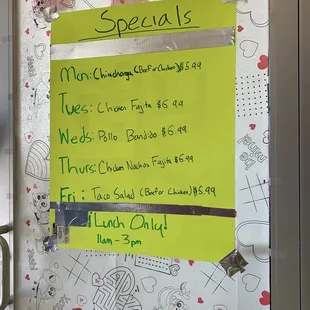 Specials
Mon: Chimichanga (Beef or Chicken) $5.99
Tues: Chicken Fajita $6.99
Weds: Pollo Bandido $6.99
Thurs: Chicken Nachos Fajita $6.99
Fri: Taco Salad (Beef or Chicken) $5.99
Lunch Only!
11am - 3pm